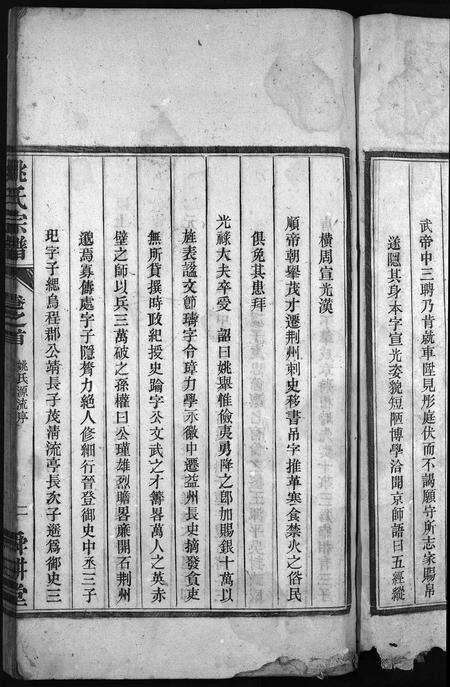 武帝中三聘乃肯就車陞見彤庭伏而不謁願守所志衆賜帛
送隱其身本字宣光姿貌短陋博學洽聞京師語曰五經縱
橫周宣光漢
順帝朝舉茂才遷荊州刺史移書吊字推革寒食禁火之俗民
俱免其患拜
光祿大夫卒受 詔曰姚舉惟儉夷勇降之郎加賜銀十萬以
旌表諡文節瑀字令璋力學永徽中遷益州長史摘發貪吏
無所貸撰時政紀援史踰字公文武之才籌畧萬人之英赤
壁之師以兵三萬破之孫權曰公瑾雄烈膽畧廉開石荊州
邈焉寡儔處字子隱膂力絕人修細行晉登御史中丞三子
玘字子總烏程郡公靖長子茂潸流亭長次子遜爲御史三
姚氏宗譜
卷之首
姚氏源流序
一
舜耕堂